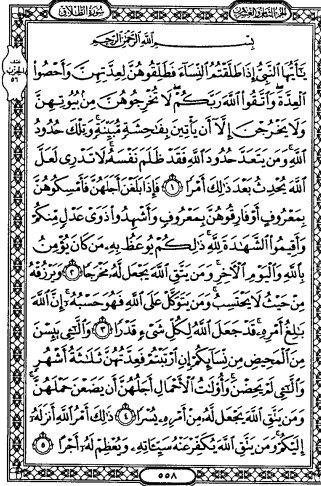 الجزء الثامن والعشرون
سورة الطلاق
بِسْمِ اللَّهِ الرَّحْمَٰنِ الرَّحِيمِ
يَٰٓأَيُّهَا ٱلنَّبِىُّ إِذَا طَلَّقْتُمُ ٱلنِّسَآءَ فَطَلِّقُوهُنَّ لِعِدَّتِهِنَّ وَأَحْصُوا۟
ٱلْعِدَّةَ ۖ وَٱتَّقُوا۟ ٱللَّهَ رَبَّكُمْ ۖ لَا تُخْرِجُوهُنَّ مِنۢ بُيُوتِهِنَّ
وَلَا يَخْرُجْنَ إِلَّآ أَن يَأْتِينَ بِفَٰحِشَةٍ مُّبَيِّنَةٍ ۚ وَتِلْكَ حُدُودُ
ٱللَّهِ ۚ وَمَن يَتَعَدَّ حُدُودَ ٱللَّهِ فَقَدْ ظَلَمَ نَفْسَهُۥ ۚ لَا تَدْرِى لَعَلَّ
ٱللَّهَ يُحْدِثُ بَعْدَ ذَٰلِكَ أَمْرًا ١ فَإِذَا بَلَغْنَ أَجَلَهُنَّ فَأَمْسِكُوهُنَّ
بِمَعْرُوفٍ أَوْ فَارِقُوهُنَّ بِمَعْرُوفٍ وَأَشْهِدُوا۟ ذَوَىْ عَدْلٍ مِّنكُمْ
وَأَقِيمُوا۟ ٱلشَّهَٰدَةَ لِلَّهِ ۚ ذَٰلِكُمْ يُوعَظُ بِهِۦ مَن كَانَ يُؤْمِنُ
بِٱللَّهِ وَٱلْيَوْمِ ٱلْءَاخِرِ ۚ وَمَن يَتَّقِ ٱللَّهَ يَجْعَل لَّهُۥ مَخْرَجًا ٢ وَيَرْزُقْهُ
مِنْ حَيْثُ لَا يَحْتَسِبُ ۚ وَمَن يَتَوَكَّلْ عَلَى ٱللَّهِ فَهُوَ حَسْبُهُۥٓ ۚ إِنَّ ٱللَّهَ
بَٰلِغُ أَمْرِهِۦ ۚ قَدْ جَعَلَ ٱللَّهُ لِكُلِّ شَىْءٍ قَدْرًا ٣ وَٱلَّٰٓـِٔى يَئِسْنَ
مِنَ ٱلْمَحِيضِ مِن نِّسَآئِكُمْ إِنِ ٱرْتَبْتُمْ فَعِدَّتُهُنَّ ثَلَٰثَةُ أَشْهُرٍ
وَٱلَّٰٓـِٔى لَمْ يَحِضْنَ ۚ وَأُو۟لَٰتُ ٱلْأَحْمَالِ أَجَلُهُنَّ أَن يَضَعْنَ حَمْلَهُنَّ ۚ
وَمَن يَتَّقِ ٱللَّهَ يَجْعَل لَّهُۥ مِنْ أَمْرِهِۦ يُسْرًا ٤ ذَٰلِكَ أَمْرُ ٱللَّهِ أَنزَلَهُۥٓ
إِلَيْكُمْ ۚ وَمَن يَتَّقِ ٱللَّهَ يُكَفِّرْ عَنْهُ سَيِّـَٔاتِهِۦ وَيُعْظِمْ لَهُۥٓ أَجْرًا ٥
٥٥٨